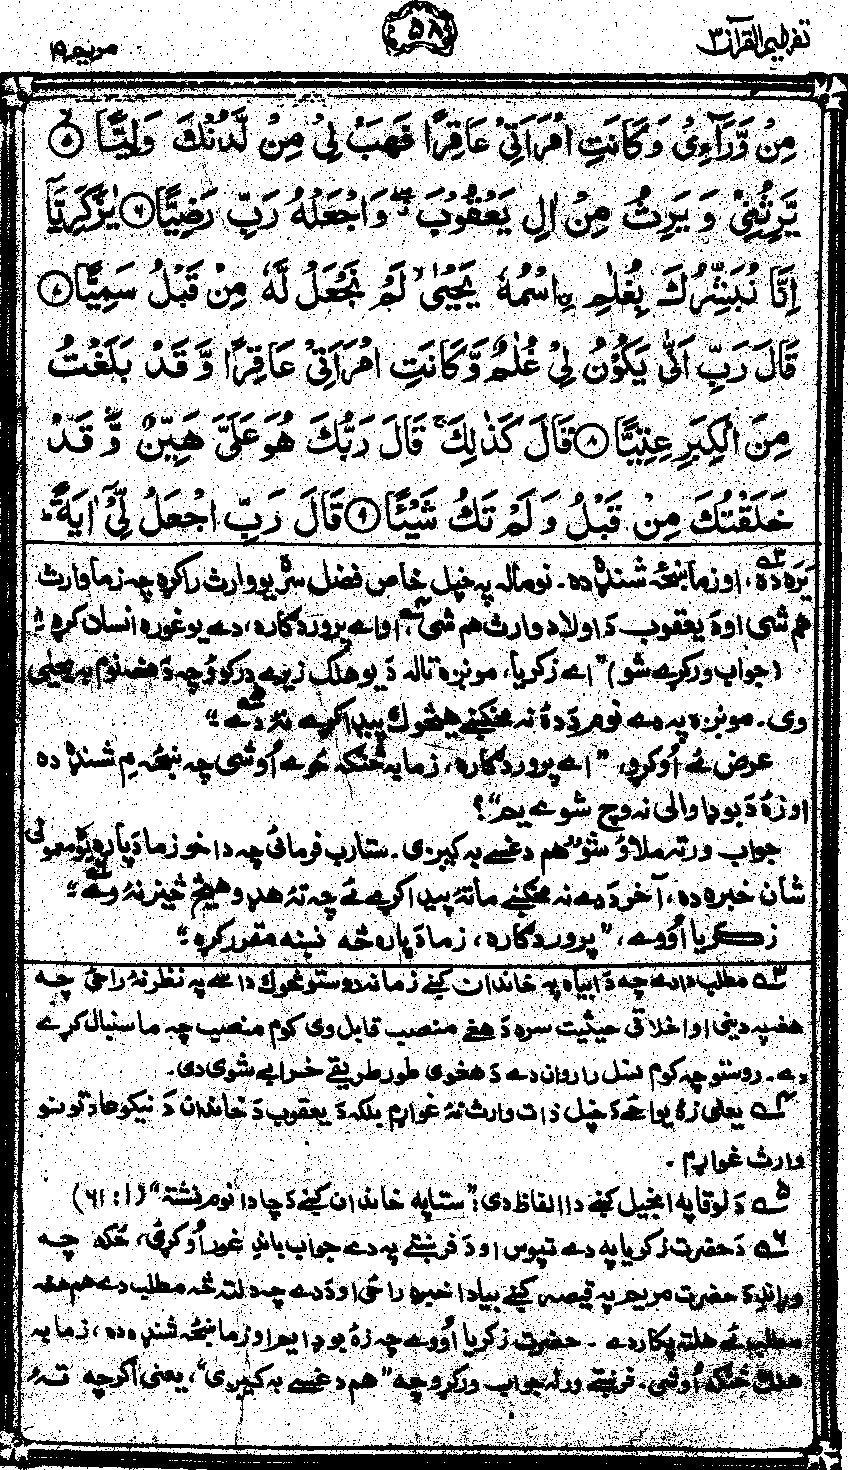 تفہیم القرآن ۳
۵۸
مریم ۱۹
مِنْ وَّرَآءِیْ وَكَانَتِ امْرَاَتِیْ عَاقِرًا فَهَبْ لِیْ مِنْ لَّدُنْكَ وَلِیًّا ۙ﴿۵﴾
یَّرِثُنِیْ وَ یَرِثُ مِنْ اٰلِ یَعْقُوْبَ ۖۗ وَاجْعَلْهُ رَبِّ رَضِیًّا ﴿۶﴾ یٰزَكَرِیَّاۤ
اِنَّا نُبَشِّرُكَ بِغُلٰمِ ِ۟اسْمُهٗ یَحْیٰی ۙ لَمْ نَجْعَلْ لَّهٗ مِنْ قَبْلُ سَمِیًّا ﴿۷﴾
قَالَ رَبِّ اَنّٰی یَكُوْنُ لِیْ غُلٰمٌ وَّكَانَتِ امْرَاَتِیْ عَاقِرًا وَّ قَدْ بَلَغْتُ
مِنَ الْكِبَرِ عِتِیًّا ﴿۸﴾ قَالَ كَذٰلِكَ ۚ قَالَ رَبُّكَ هُوَ عَلَیَّ هَیِّنٌ وَّ قَدْ
خَلَقْتُكَ مِنْ قَبْلُ وَ لَمْ تَكُ شَیْئًا ﴿۹﴾ قَالَ رَبِّ اجْعَلْ لِّیْۤ اٰیَةً ؕ
یَره ده ۳، او زما ښځه شنډه ده۔ نو ماله په خپل خاص فضل سره یو وارث راکړه چه زما وارث
هم شی او د یعقوب د اولاد وارث هم شی ۴، او اے پروردګاره، دے یو غوره انسان کړه ؛
(جواب ورکړے شو) "اے زکریا، مونږه تاله د یو هلک زیرے درکوؤ چه د هغه نوم به یحیٰی
وی۔ مونږه په دے نوم د ده نه مخکښے هیڅوک پیدا کړے نه دے ۵"؛
عرض ئے اُوکړو، "اے پروردګاره، زما به څنګه ځوے اُوشی چه ښځه مِ شنډه ده
او زه د بوډا والی نه وچ شوے یم"؟
جواب ورته ملاؤ شو "هم دغسے به کیږی۔ ستا رب فرمائی چه دا خو زما دپاره یو معمولی
شان خبره ده، آخر د دے نه مخکښے ما ته پیدا کړے ئے چه ته هډو هیڅ څیز نه وے ۶"؛
زکریا اُووے، "پروردګاره، زما دپاره څه نښه مقرر کړه"؛
۳ مطلب دا دے چه د ابیاه په خاندان کښے زما نه وروستو څوک داسے په نظر نه راځی چه
هغه په دینی او اخلاقی حیثیت سره د هغے منصب قابل وی کوم منصب چه ما سنبال کړے
دے۔ وروستو چه کوم نسل را روان دے د هغوی طور طریقے خرابے شوی دی۔
۴ یعنی زه یواځے د خپل ذات وارث نه غواړم بلکه د یعقوب د خاندان د نیکو عادتونو
وارث غواړم۔
۵ د لوقا په انجیل کښے دا الفاظ دی: "ستا په خاندان کښے د چا دا نوم نشته" (۱: ۶۱)
۶ د حضرت زکریا په دے تپوس او د فرښتے په دے جواب باندِ غور اُوکړئ، ځکه چه
وړاندِ د حضرت مریم په قیصه کښے بیا دا خبره راځی او د دے چه دلته څه مطلب دے هم هغه
مطلب ئے هلته پکار دے۔ حضرت زکریا اُووے چه زه بوډا یم او زما ښځه شنډه ده، زما به
هلک څنګه اُوشی۔ فرښتے ورله جواب ورکړو چه "هم دغسے به کیږی"، یعنی اګرچه ته